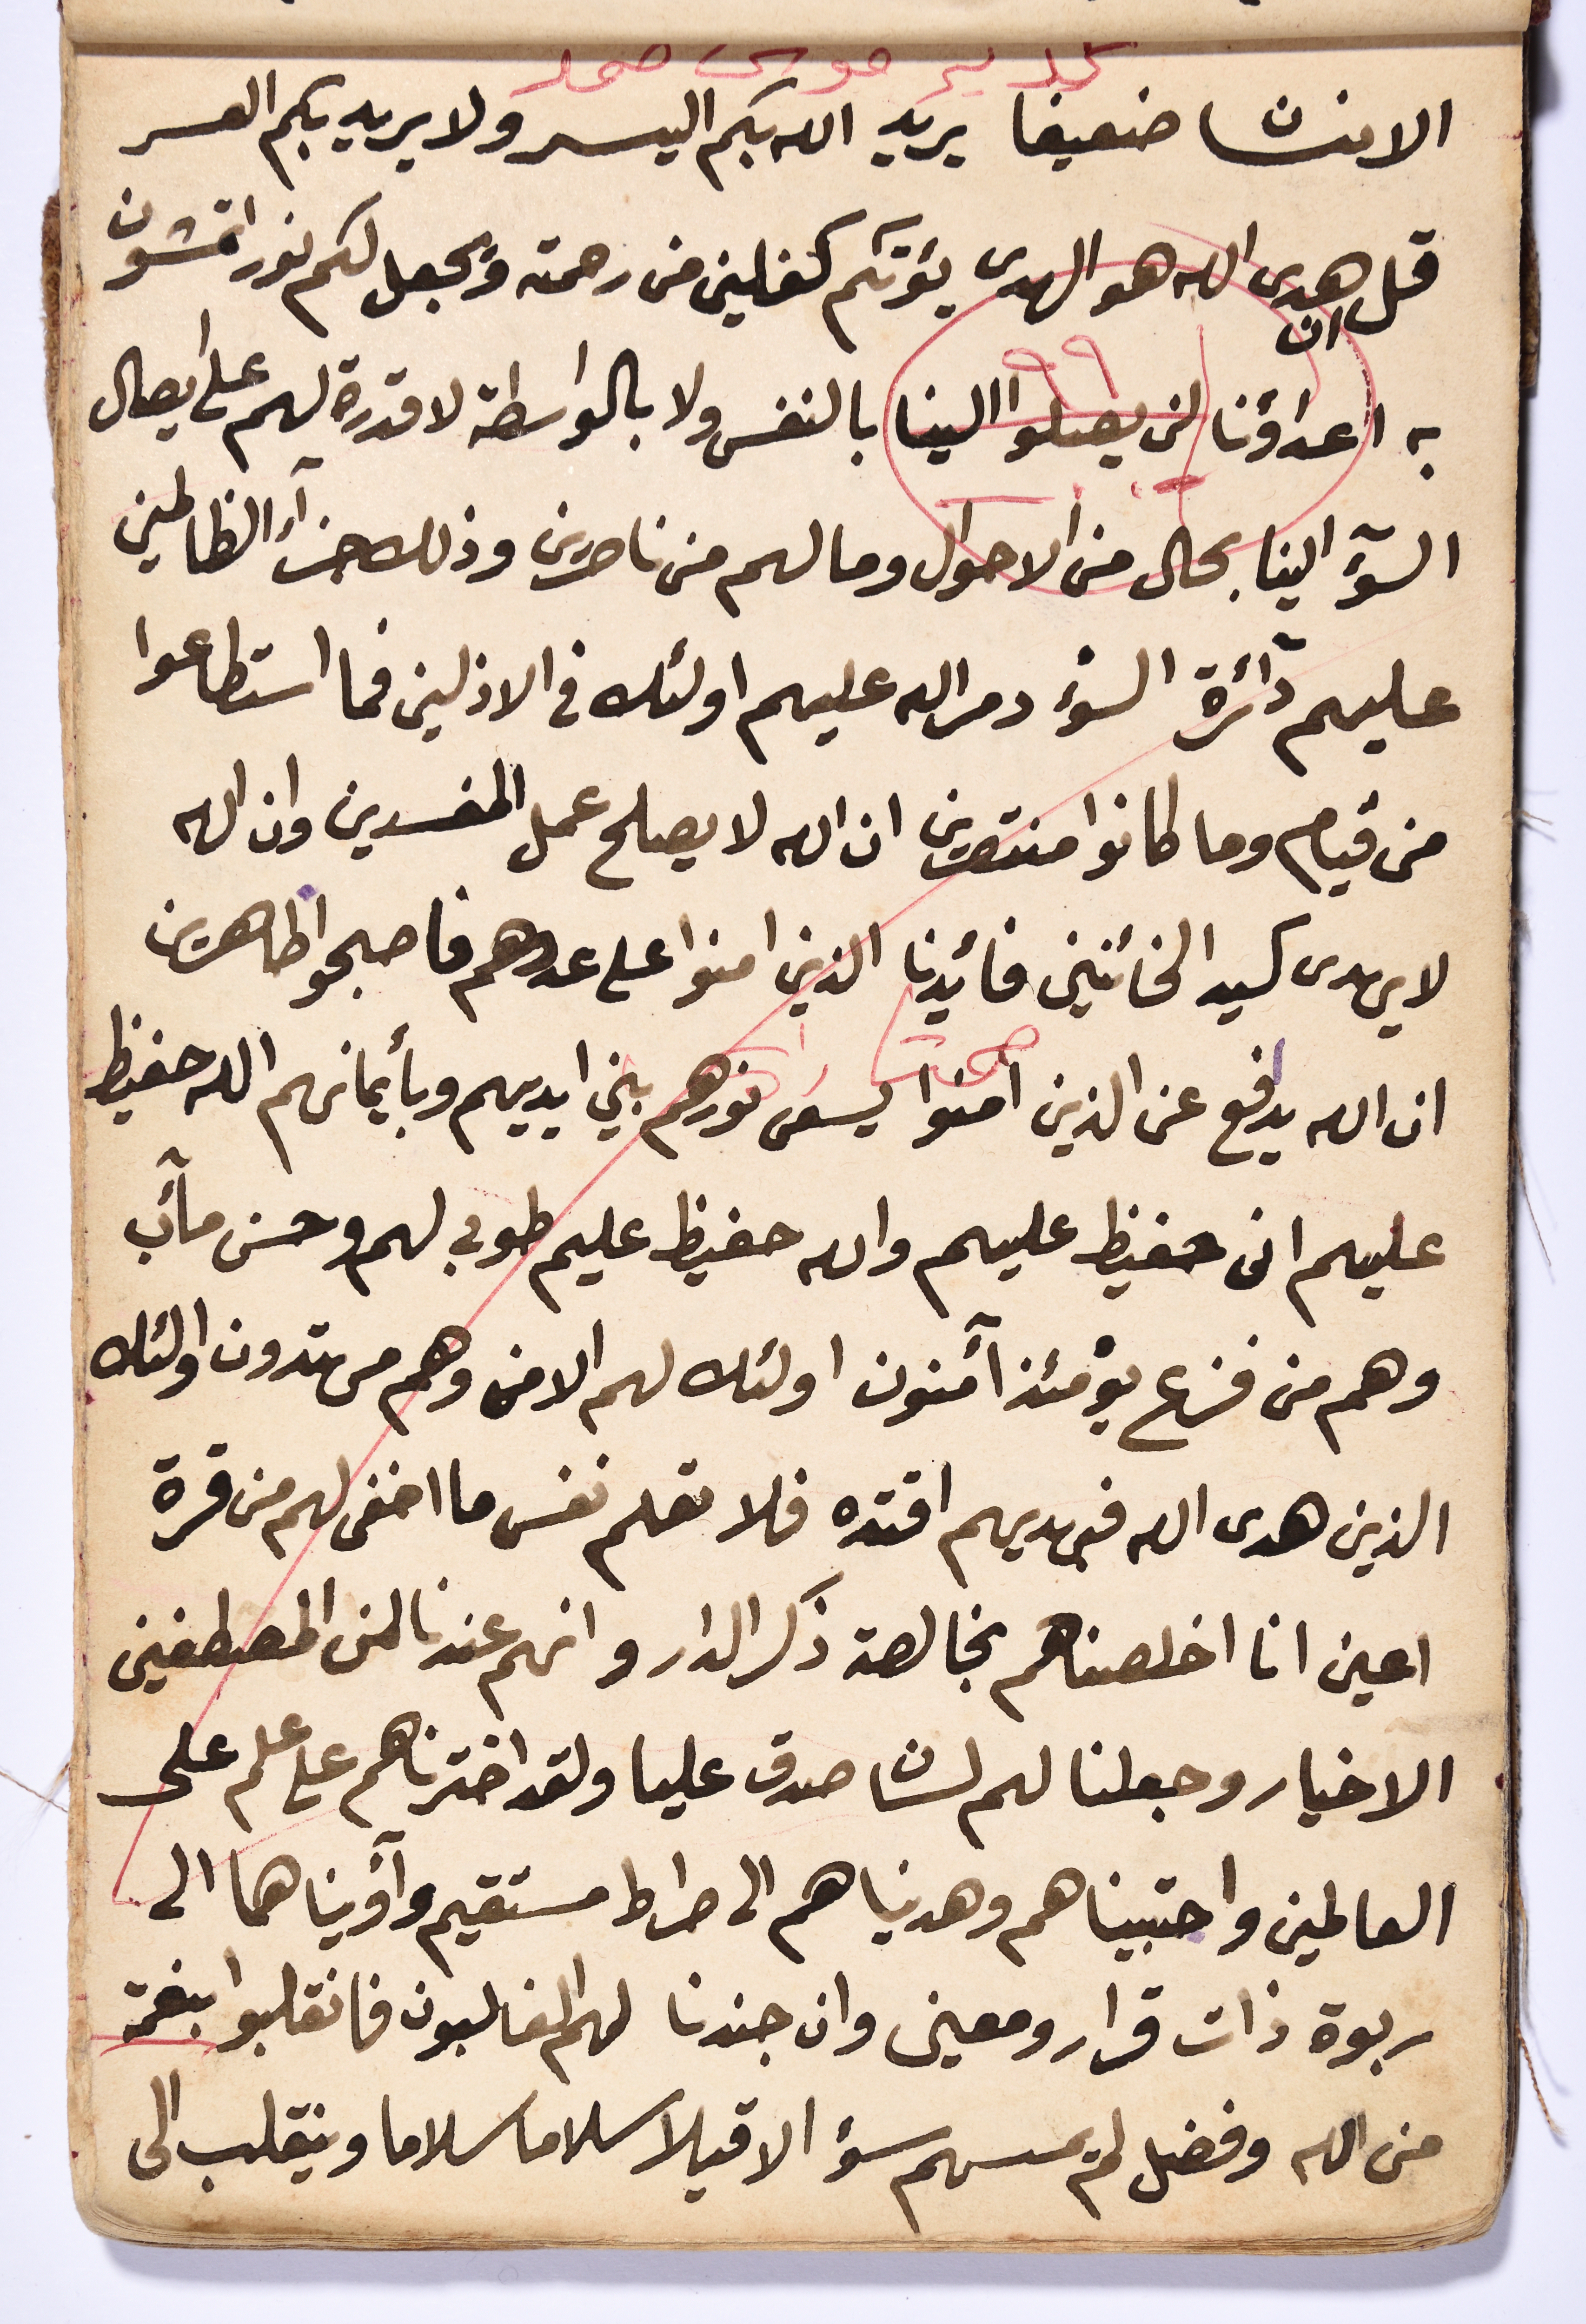 الانسان ضعيفا يريد الله بكم اليسر ولا يريد بكم العسر
قل ان هدى الله هو الهدى يؤتكم كفلين من رحمته ويجعل لكم نورا تمشون
به اعداؤنا لن يصلوا الينا بالنفس ولا بالواسطة لا قدرة لهم على ايصال
السوٓء الينا بحال من الاحوال وما لهم من ناصرين وذلك جزآء الظالمين
عليهم دآئرة السوء دمر الله عليهم اولئك فى الاذلين فما استطاعوا
من قيام وما كانوا منتصرين ان الله لا يصلح عمل المفسدين وان الله
لا يهدى كيد الخائنين فائيدنا الذين امنوا على عدوهم فاصبحوا ظاهرين
ان الله يدافع عن الذين امنوا يسعى نورهم بين ايديهم وبأيمانهم الله حفيظ
عليهم انى حفيظ عليهم والله حفيظ عليم طوبى لهم وحسن مآئب
وهم من فزع يومئذ آمنون اولئك لهم الامن وهم مهتدون اولئك
الذين هدى الله فبهديهم اقتده فلا تعلم نفس ما اخفى لهم من قرة
اعين انا اخلصناهم بخالصة ذكر الدار وانهم عندنا لمن المصطفين
الاخيار وجعلنا لهم لسان صدق عليا ولقد اخترناهم على علم على
العالمين واجتبيناهم وهديناهم الى صراط مستقيم وآويناهما الى
ربوة ذات قرار ومعين وان جندنا لهم الغالبون فانقلبوا بنعمة
من الله وفضل لم يمسسهم سوء الا قيلا سلاما سلاما وينقلب الى